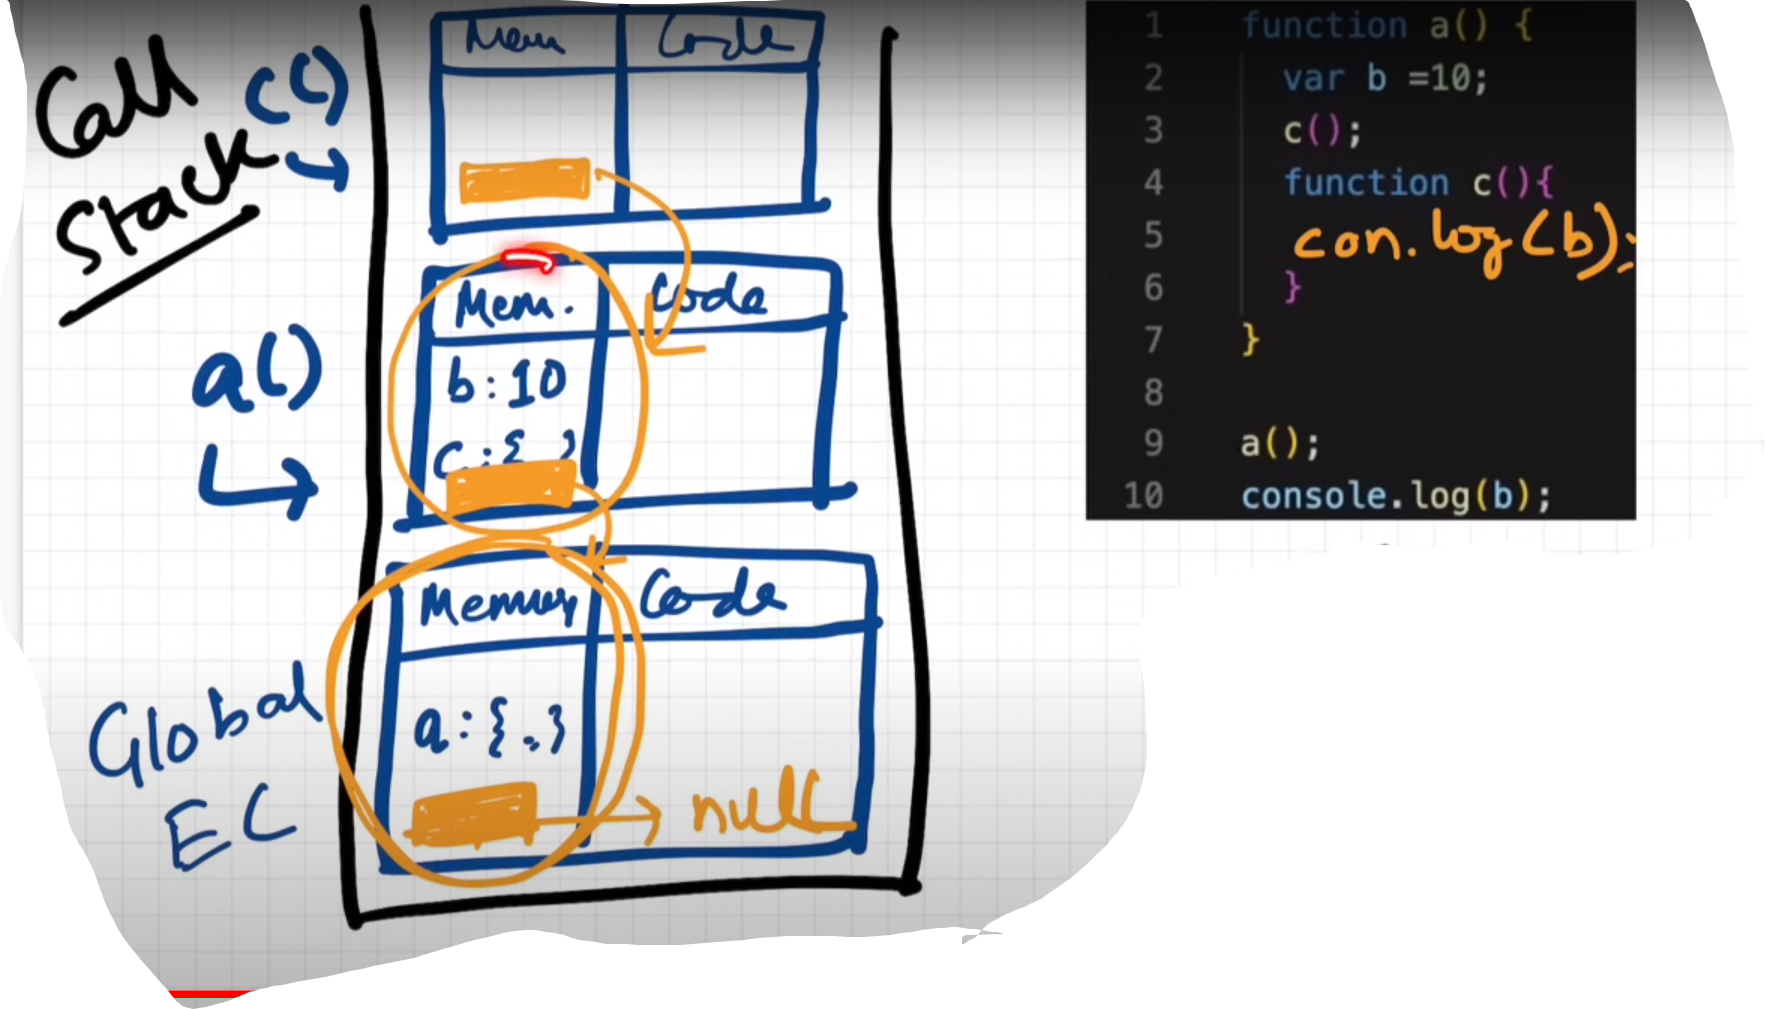 Call
Stack
c()
Mem Code
a()
Mem. Code
b:10
c:{ }
Global
EC
Memory Code
a:{..}
null
1 function a() {
2 var b =10;
3 c();
4 function c(){
5 con.log(b);
6 }
7 }
8
9 a();
10 console.log(b);